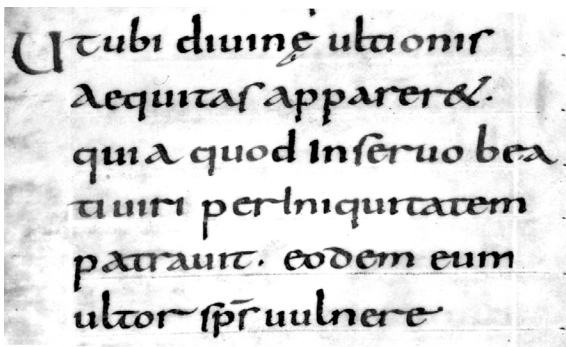 Ut ubi diuinę ultionis
aequitas apparer&.
quia quod in seruo bea
ti uiri per iniquitatem
patrauit. eodem eum
ultor sp̄s uulnere